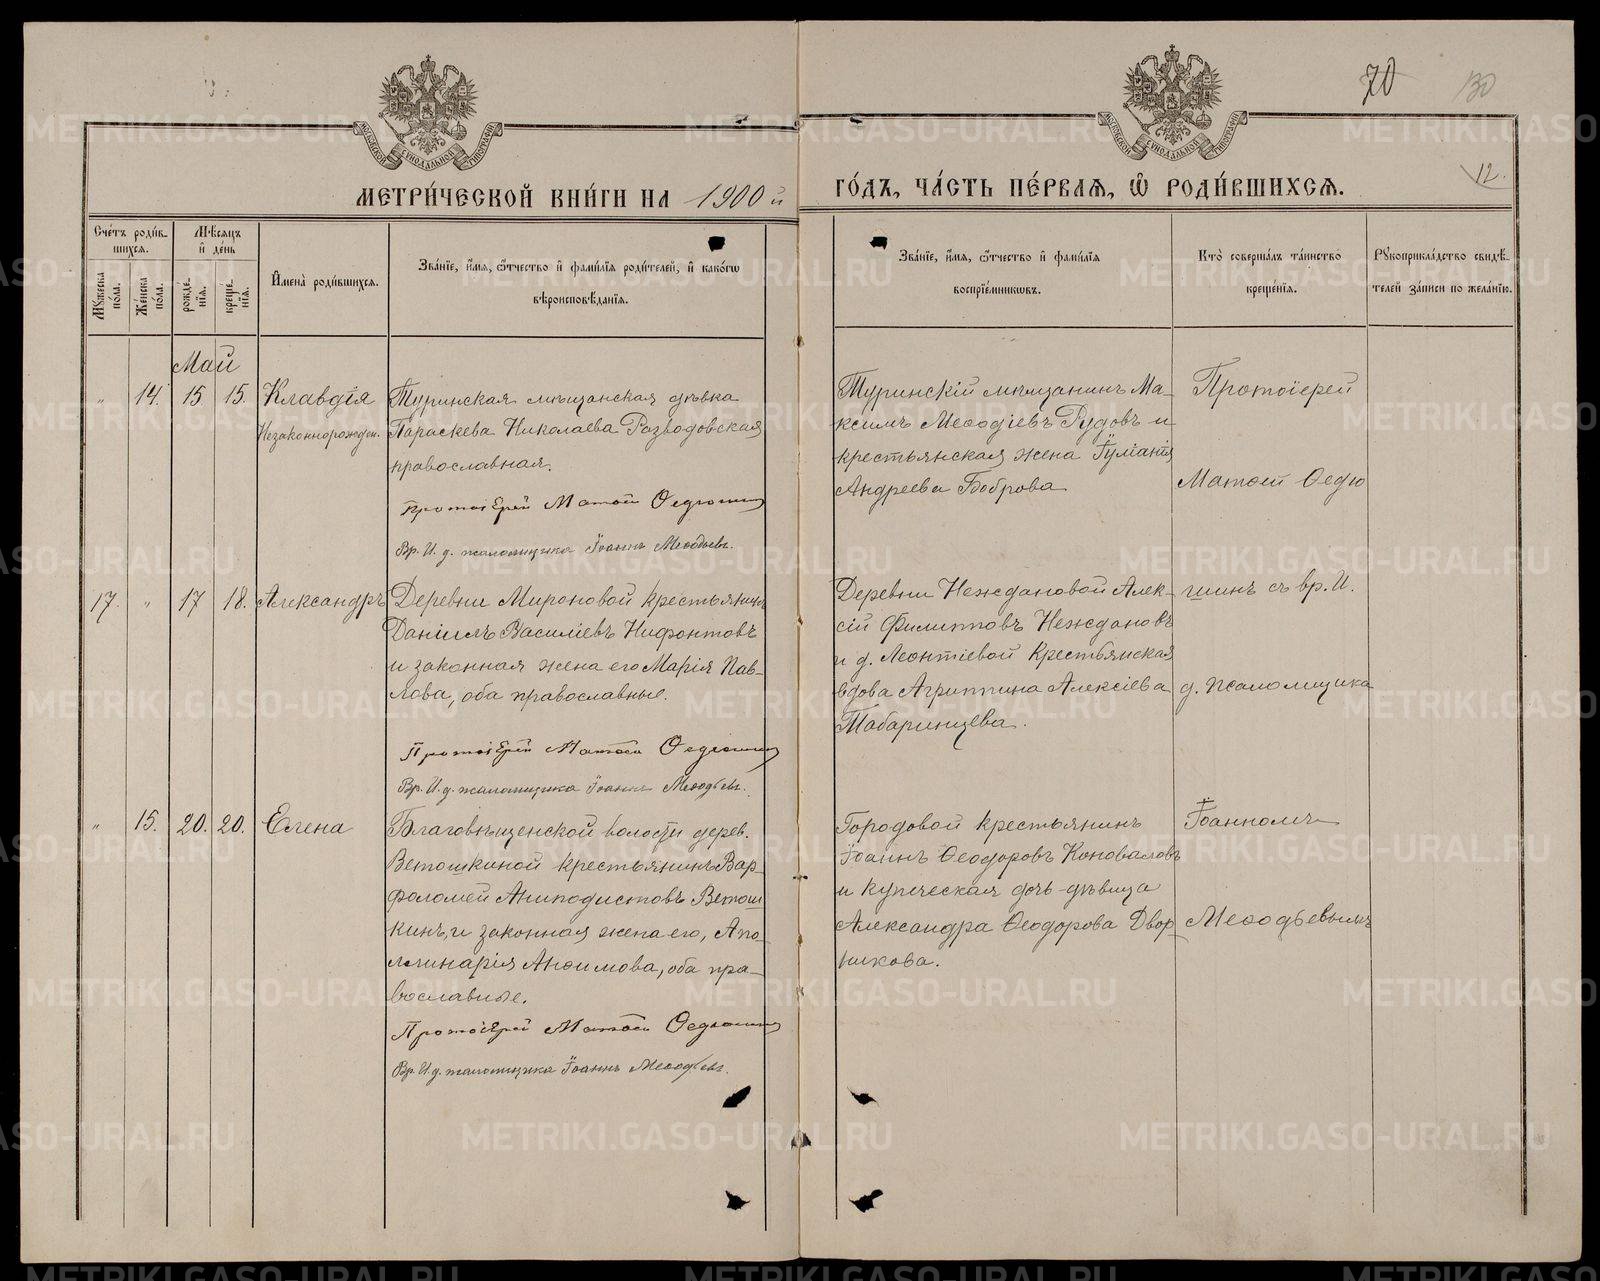 70
130
12.
МОСКОВСКОЙ СУНОДАЛЬНОЙ ТИПОГРАФІИ
МОСКОВСКОЙ СУНОДАЛЬНОЙ ТИПОГРАФІИ
МЕТРИ́ЧЕСКОЙ КНИ́ГИ НА 1900й ГО́ДЪ, ЧА́СТЬ ПЕ́РВАЯ, Ѡ РОДИ́ВШИХСЯ.
Сче́тъ роди́в-
шихся.
Мѣсяцъ
и де́нь
Мꙋжеска
по́ла.
Же́нска
по́ла.
рожде́-
нїѧ.
креще́-
нїѧ.
Имена̀ роди́вшихся.
Зва́нїе, и́мѧ, ѻ҆́тчество и҆ фами́лїѧ роди́телей, и҆ како́гѡ
вѣроисповѣ́данїѧ.
Зва́нїе, и́мѧ, ѻ҆́тчество и҆ фами́лїѧ
воспрїе́мникѡвъ.
Кто̀ соверша́лъ та́инство
креще́нїѧ.
Рꙋкоприкла́дство свидѣ́-
телей за́писи по жела́нїю.
Май
" 14. 15. 15. Клавдія
Незаконнорожден.
Туринская мѣщанская дѣвка
Параскева Николаева Разводовская
православная.
Протоіерей Матѳей Ѳедюшинъ
Вр. И. д. псаломщика Іоаннъ Меѳодьевъ.
Туринскій мѣщанинъ Ма-
ксимъ Меѳодіевъ Рудовъ и
крестьянская жена Іуліанія
Андреева Боброва
Протоіерей
Матѳей Ѳедю
17. " 17 18. Александръ
Деревни Мироновой крестьянинъ
Даніилъ Василіевъ Нифонтовъ
и законная жена его Марія Пав-
лова, оба православные.
Протоіерей Матѳей Ѳедюшинъ
Вр. И. д. псаломщика Іоаннъ Меѳодьевъ.
Деревни Неждановой Алек-
сій Филипповъ Неждановъ
и д. Леонтіевой крестьянская
вдова Агриппина Алексіева
Табаринцева.
шинъ съ вр. И.
д. псаломщика
" 15. 20. 20. Елена
Благовѣщенской волости дерев.
Ветошкиной крестьянинъ Вар-
ѳоломей Аниподистовъ Ветош-
кинъ, и законная жена его, Апо-
ллинарія Анѳимова, оба пра-
вославные.
Протоіерей Матѳей Ѳедюшинъ
Вр. И. д. псаломщика Іоаннъ Меѳодьевъ.
Городовой крестьянинъ
Іоаннъ Ѳеодоровъ Коноваловъ
и купеческая дочь-дѣвица
Александра Ѳеодорова Двор-
никова.
Іоанномъ
Меѳодьевымъ